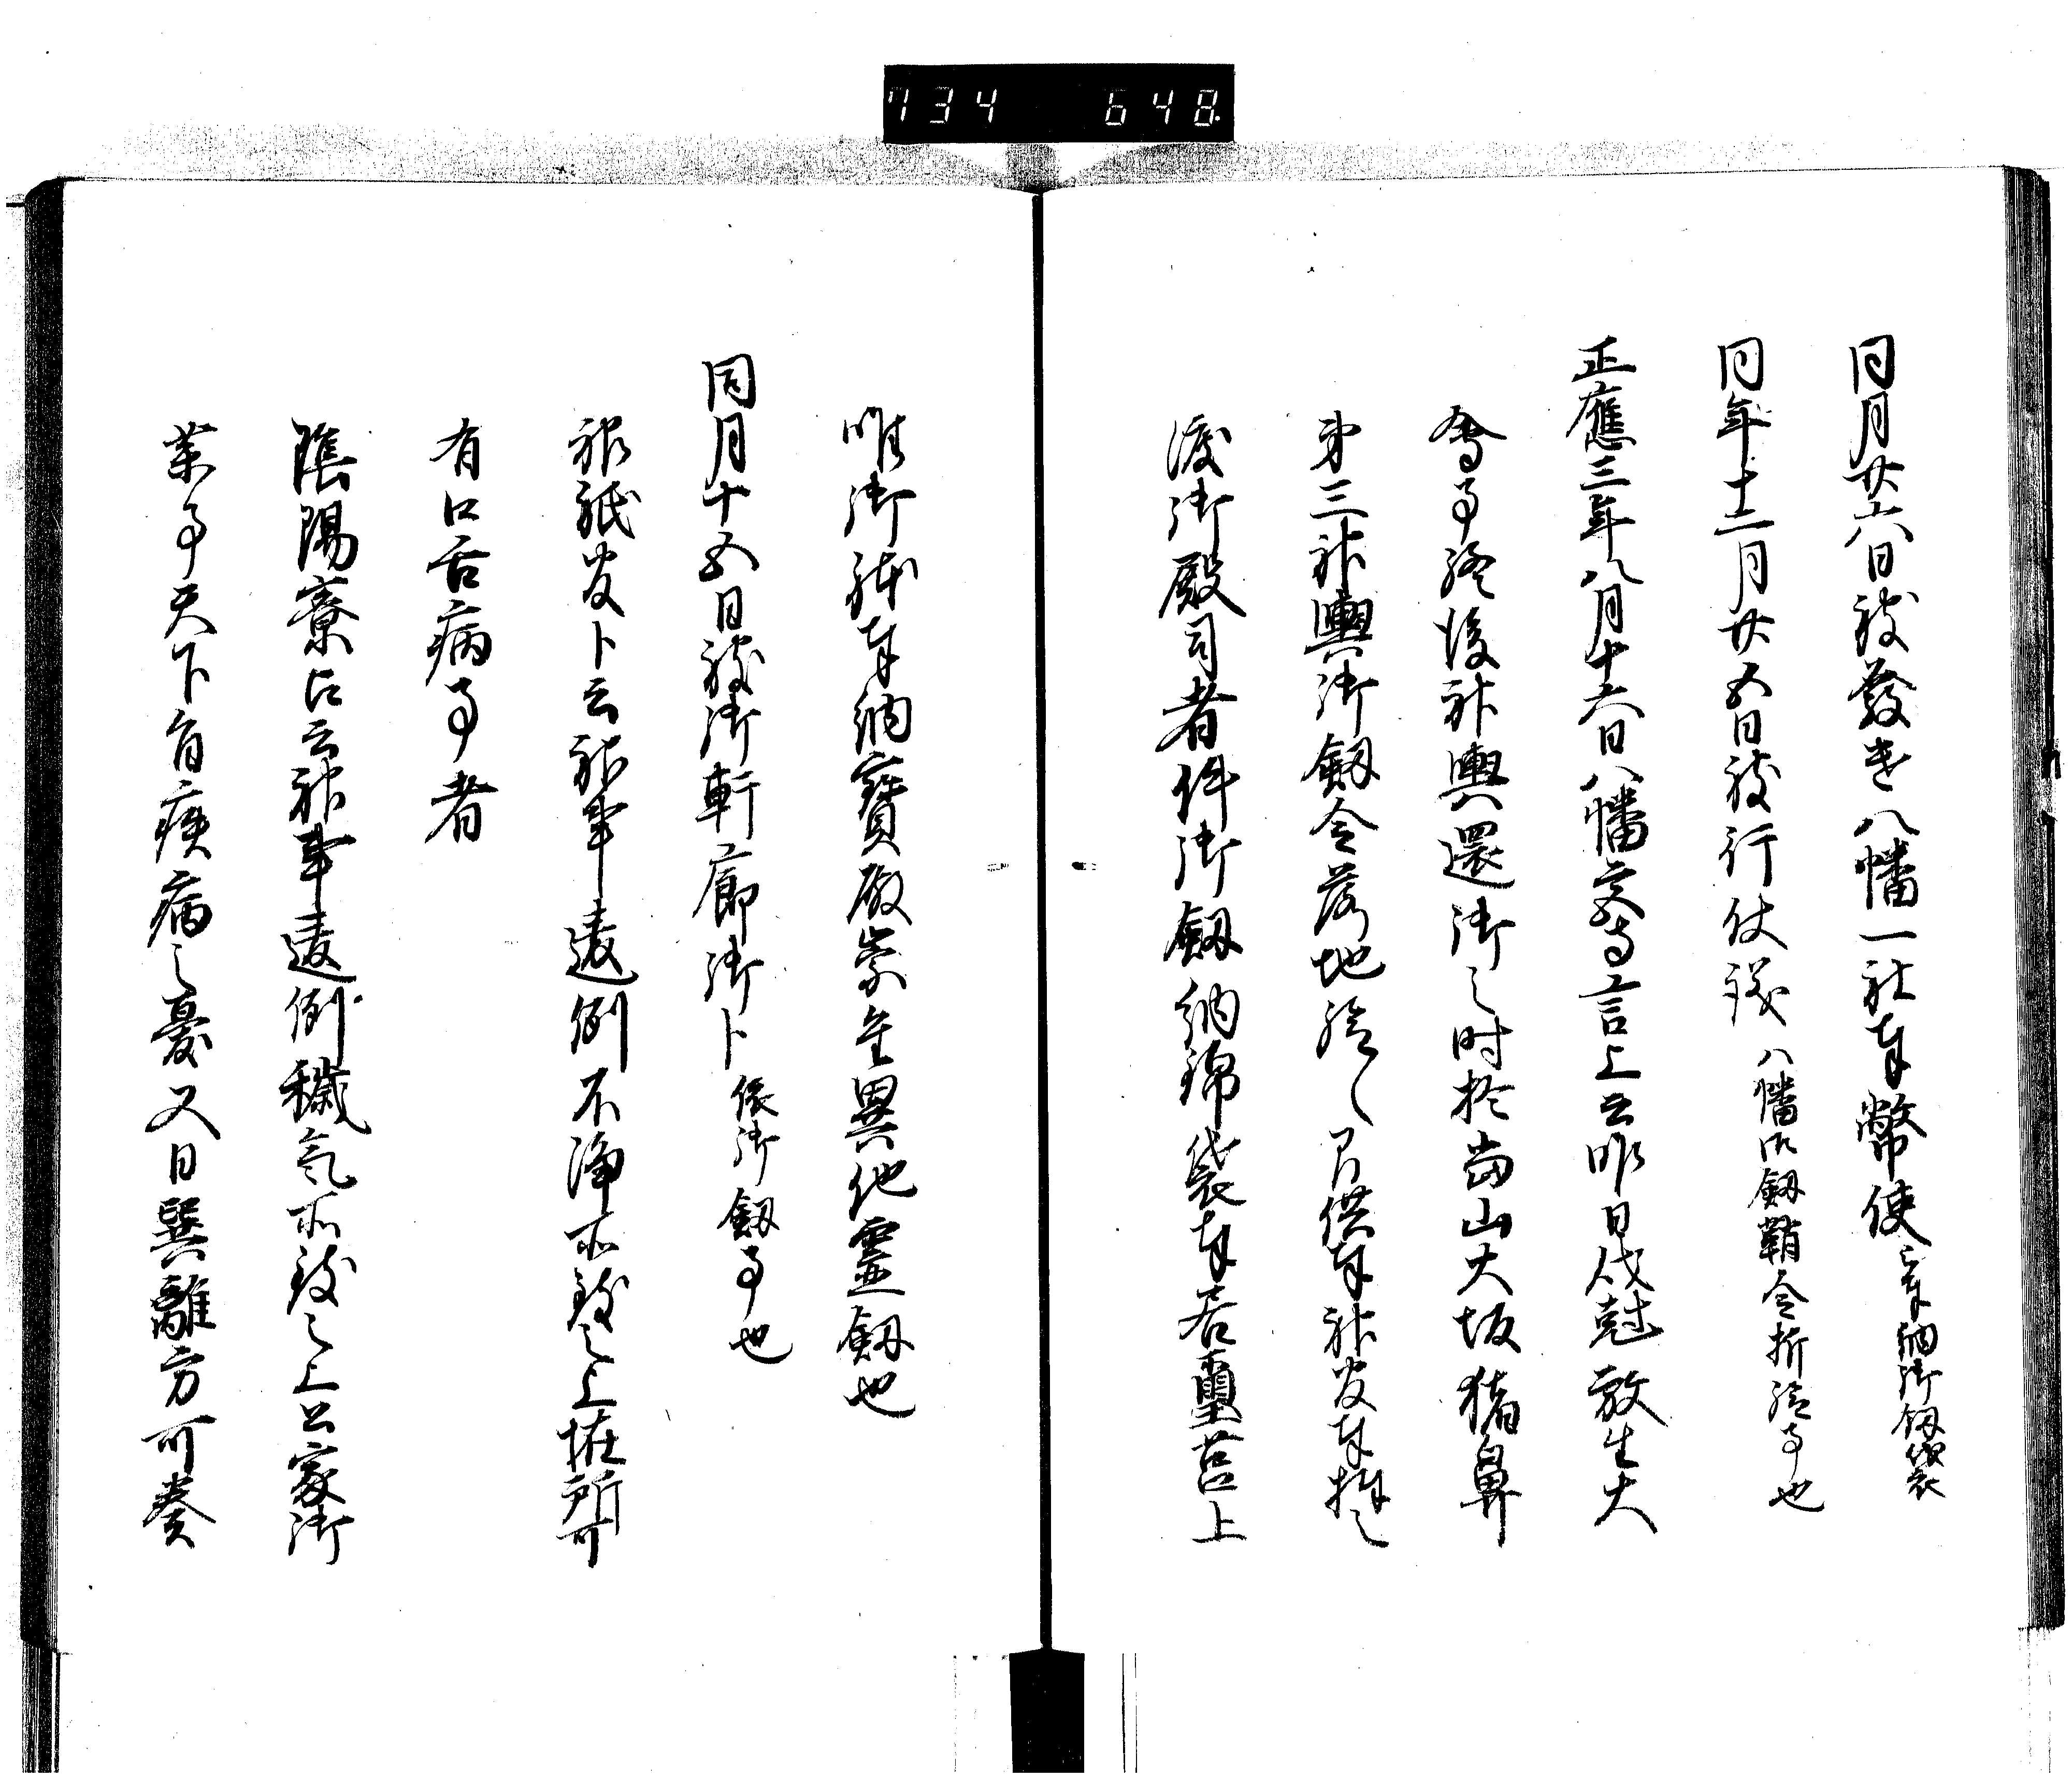 734 648
同月廿六日被發遣八幡一社奉幣使 被奉納御釼袋
同年十二月廿五日被行仗議 八幡御釼鞘令折給事也
正應三年八月十六日八幡宮寺言上云昨日戌尅放生大
會事終後神輿還御之時於當山大坂猪鼻
第三神輿御釼令落地給之間供奉神官奉捧之
渡御殿司者件御釼納錦袋奉居璽筥上
唯御躰奉納寶殿崇重異他霊釼也
同月十五日被御軒廊御卜 依御釼事也
神祇官卜云神事違例不浄所致之上恠所可
有口舌病事者
陰陽寮占云神事違例穢気所致之上公家御
薬事天下有疾病之憂又自巽離方可奏